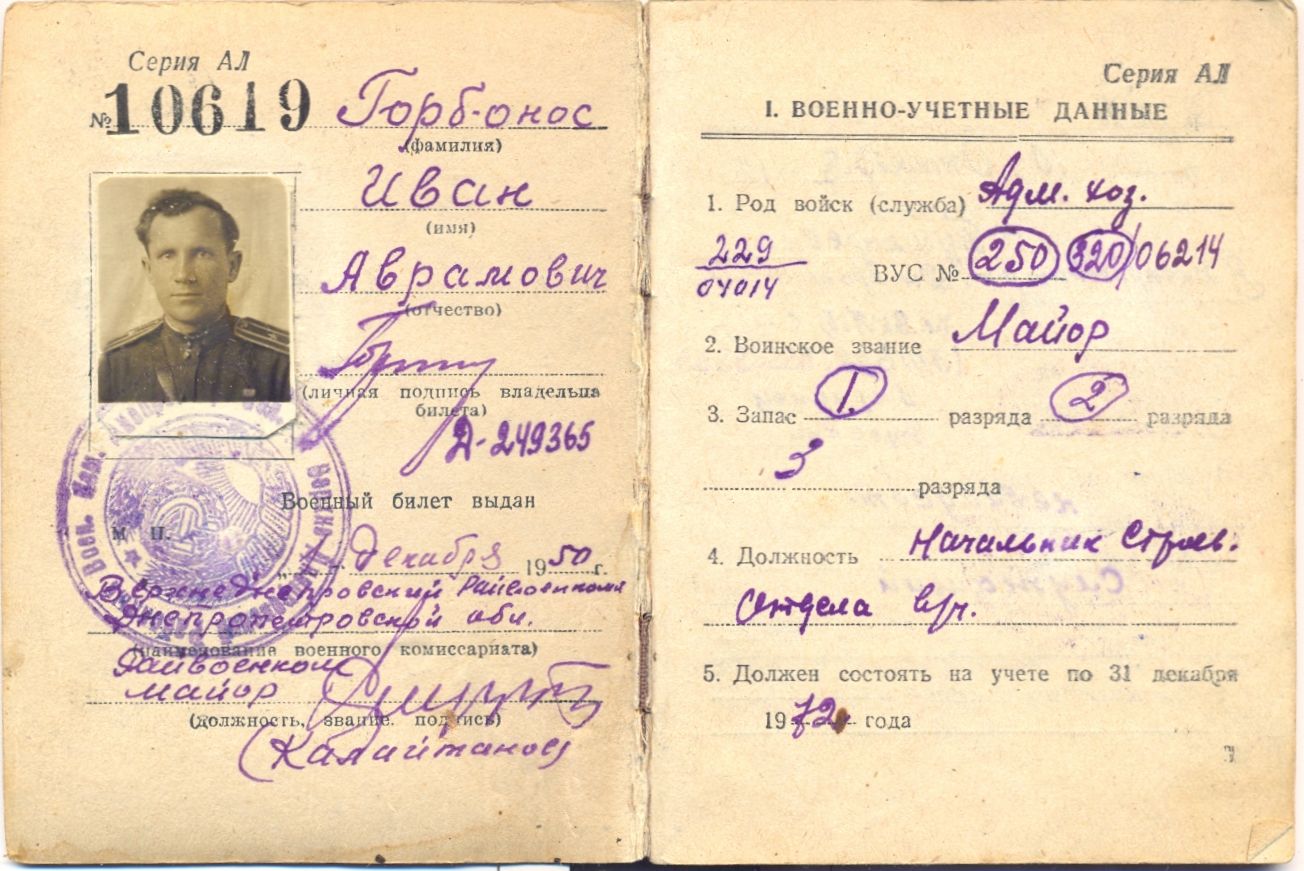 Серия АЛ
№ 10619
Горб-онос
(фамилия)
Иван
(имя)
Аврамович
(отчество)
(личная подпись владельца
билета)
Д-249365
Военный билет выдан
М П.
" " декабря 1950 г.
Верхнеднепровский Райвоенкома
Днепропетровской обл.
(наименование военного комиссариата)
Райвоенком
майор
(должность, звание, подпись)
Серия АЛ
I. ВОЕННО-УЧЕТНЫЕ ДАННЫЕ
1. Род войск (служба) Адм. хоз.
229 ВУС № 250 320/06214
04014
2. Воинское звание Майор
3. Запас 1. разряда 2 разряда
3 разряда
4. Должность Начальник Строев.
Отдела в/ч.
5. Должен состоять на учете по 31 декабря
1972 года